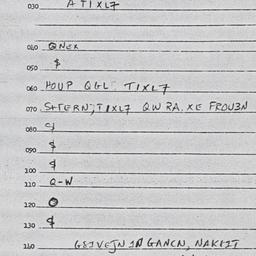 030 A TIXL7
040 QNEX
050 $
060 HOUP QGL TIXL7
070 S+TERN, TIXL7 QW RA. XE FROU3N
080
090 $
100 $
110 Q-W
120
130 $
140 GSIVEJN GANCN, NAKIIT